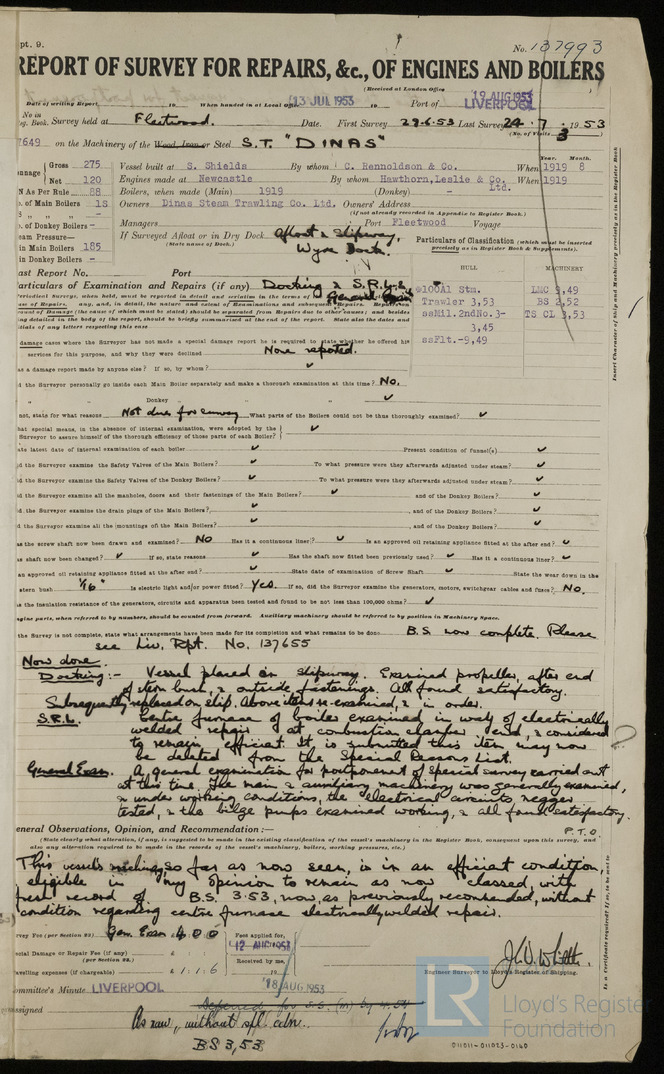 pt. 9.
No. 137993
REPORT OF SURVEY FOR REPAIRS, &c., OF ENGINES AND BOILERS
(Received at London Office 19 AUG 1953
Date of writing Report 19 When handed in at Local Office 13 JUL 1953 19 Port of LIVERPOOL
No in
eg. Book. Survey held at Fleetwood. Date. First Survey 29.6.53 Last Survey 24. 7. 1953
(No. of Visits 3
7649 on the Machinery of the Wood, Iron or Steel S.T. "DINAS"
nnage
Gross 275
Net 120
Vessel built at S. Shields By whom C. Rennoldson & Co. When 1919 8
Year. Month.
Engines made at Newcastle By whom Hawthorn, Leslie & Co. Ltd. When 1919
N As Per Rule 88
Boilers, when made (Main) 1919 (Donkey) -
o. of Main Boilers 1S
Owners Dinas Steam Trawling Co. Ltd. Owners' Address
(if not already recorded in Appendix to Register Book.)
o. of Donkey Boilers -
Managers Port Fleetwood Voyage
team Pressure—
in Main Boilers 185
in Donkey Boilers -
If Surveyed Afloat or in Dry Dock Afloat & Slipway,
(State name of Dock.) Wyre Dock.
Particulars of Classification (which must be inserted
precisely as in Register Book & Supplements).
HULL MACHINERY
Last Report No. Port
Particulars of Examination and Repairs (if any) Docking & S.R.L. &
General Exam
100A1 Stm. LMC 9,49
Trawler 3,53 BS 2,52
ssMil.2ndNo.3- TS CL 3,53
3,45
ssFlt.-9,49
Insert Character of Ship and Machinery precisely as in the Register Book
damage cases where the Surveyor has not made a special damage report he is required to state whether he offered his
services for this purpose, and why they were declined None reported.
as a damage report made by anyone else? If so, by whom? ✓
d the Surveyor personally go inside each Main Boiler separately and make a thorough examination at this time? No.
" " Donkey " " " ✓
not, state for what reasons Not due for survey What parts of the Boilers could not be thus thoroughly examined? ✓
hat special means, in the absence of internal examination, were adopted by the
Surveyor to assure himself of the thorough efficiency of those parts of each Boiler? ✓
ate latest date of internal examination of each boiler ✓ Present condition of funnel(s) ✓
d the Surveyor examine the Safety Valves of the Main Boilers? ✓ To what pressure were they afterwards adjusted under steam? ✓
d the Surveyor examine the Safety Valves of the Donkey Boilers? ✓ To what pressure were they afterwards adjusted under steam? ✓
d the Surveyor examine all the manholes, doors and their fastenings of the Main Boilers? ✓ and of the Donkey Boilers? ✓
d the Surveyor examine the drain plugs of the Main Boilers? ✓, and of the Donkey Boilers? ✓
d the Surveyor examine all the mountings of the Main Boilers? ✓, and of the Donkey Boilers? ✓
as the screw shaft now been drawn and examined? No Has it a continuous liner? ✓ Is an approved oil retaining appliance fitted at the after end? ✓
as shaft now been changed? ✓ If so, state reasons ✓ Has the shaft now fitted been previously used? ✓ Has it a continuous liner? ✓
an approved oil retaining appliance fitted at the after end? ✓ State date of examination of Screw Shaft ✓ State the wear down in the
stern bush 1/16" Is electric light and/or power fitted? Yes. If so, did the Surveyor examine the generators, motors, switchgear cables and fuses? No.
as the insulation resistance of the generators, circuits and apparatus been tested and found to be not less than 100,000 ohms? ✓
ngine parts, when referred to by numbers, should be counted from forward. Auxiliary machinery should be referred to by position in Machinery Space.
the Survey is not complete, state what arrangements have been made for its completion and what remains to be done B.S. now complete. Please
see Liv. Rpt. No. 137655
Now done.
Docking:- Vessel placed on slipway. Examined propeller, after end
of stern bush, & outside fastenings. All found satisfactory.
Subsequently replaced on slip. Above items re-examined, & in order.
S.R.L. Centre furnace of boiler examined in way of electrically
welded repair at combustion chamber end, & considered
to remain efficient. It is submitted this item may now
be deleted from the Special Reasons List.
General Exam. A general examination for postponement of special survey carried out
at this time. The main & auxiliary machinery was generally examined,
& under working conditions, the electrical circuits megger
tested, & the bilge pumps examined working, & all found satisfactory.
P.T.O.
eneral Observations, Opinion, and Recommendation:—
(State clearly what alteration, if any, is suggested to be made in the existing classification of the vessel's machinery in the Register Book, consequent upon this survey, and
also any alteration required to be made in the records of the vessel's machinery, boilers, working pressures, etc.)
This vessel's machinery, so far as now seen, is in an efficient condition,
eligible in my opinion to remain as now classed, with
fresh record of B.S. 3.53, now, as previously recommended, without
condition regarding centre furnace electrically welded repair.
rvey Fee (per Section 29) Gen. Exam 4 0 0
Fees applied for,
12 AUG 1953
ecial Damage or Repair Fee (if any)
(per Section 29.)
Received by me,
19
avelling expenses (if chargeable) £ 1 : 1 : 6
Engineer Surveyor to Lloyd's Register of Shipping.
ommittee's Minute LIVERPOOL 18 AUG 1953
ssigned
As now, without spl. cdn.
BS 3,53
LR
Lloyd's Register
Foundation
011011-011023-0140